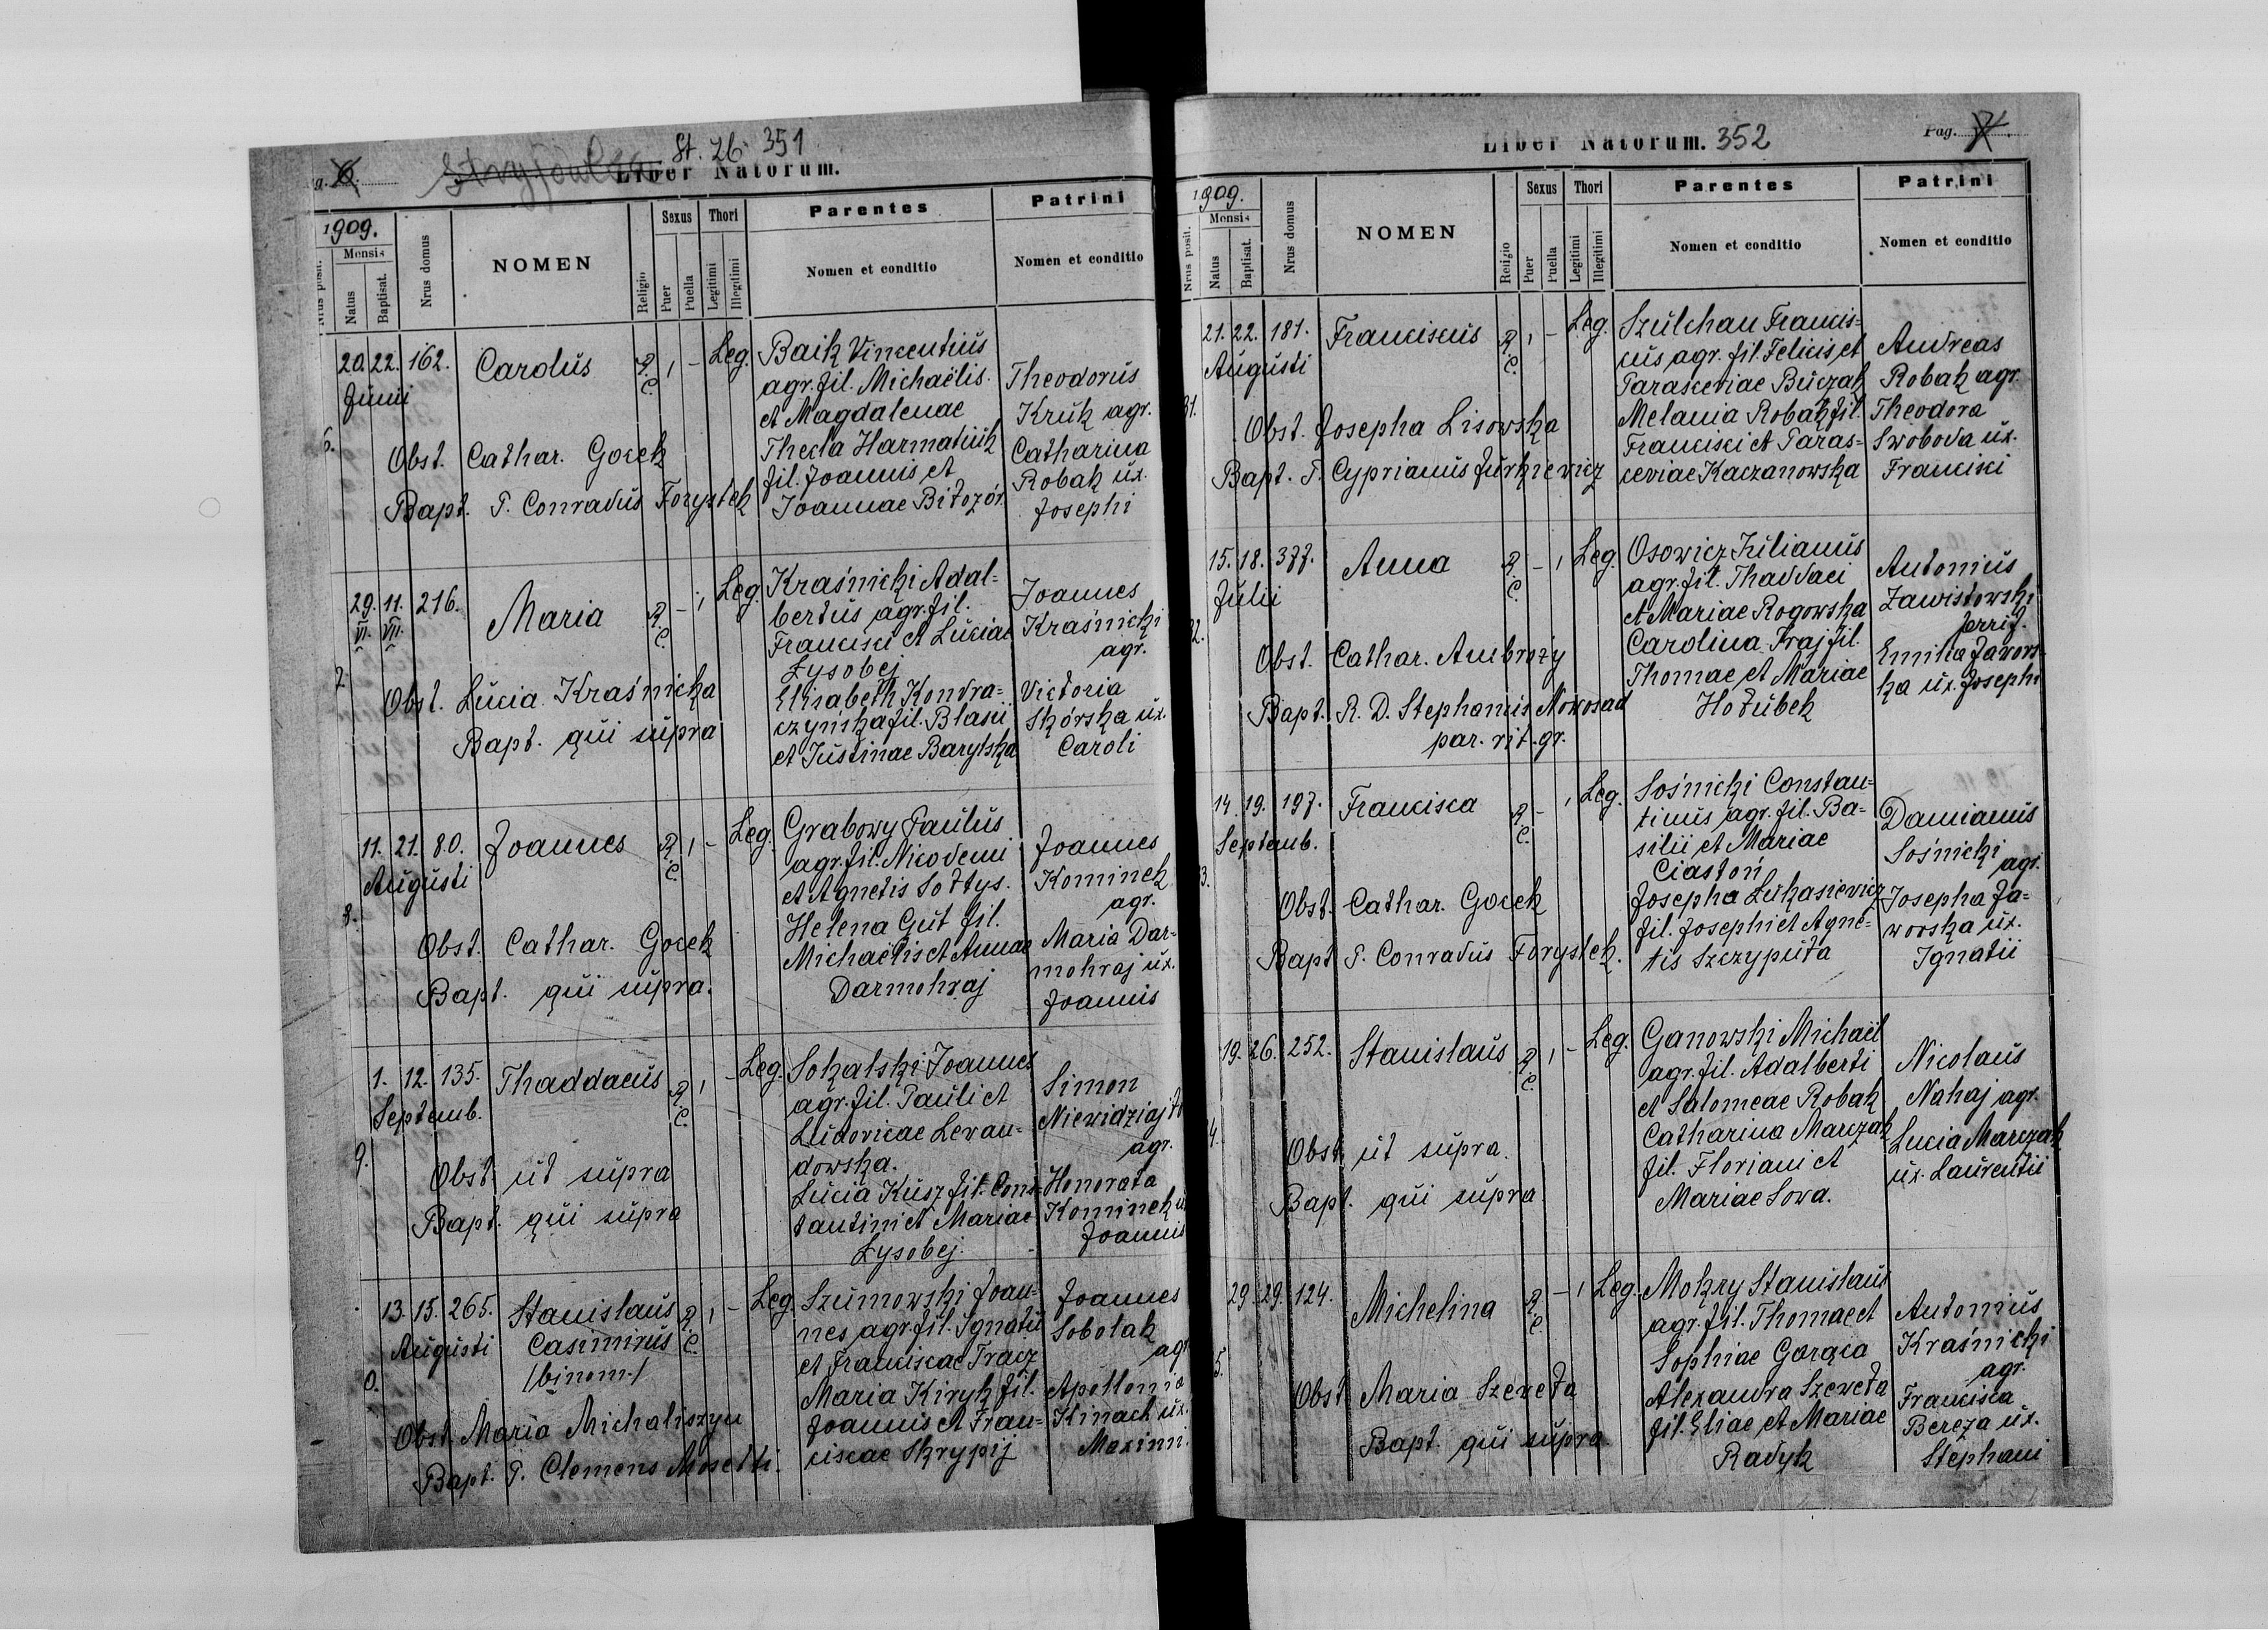 St. 26. 351
Liber Natorum.
1909.
Nrus posit.
Mensis
Natus
Baptisat.
Nrus domus
NOMEN
Religio
Sexus
Puer
Puella
Thori
Legitimi
Illegitimi
Parentes
Nomen et conditio
Patrini
Nomen et conditio
6.
20. 22. 162. Carolus R. C. 1 - Leg.
Junii
Obst. Cathar. Gocek
Bapt. P. Conradus Forystek
Baik Vincentius
agr. fil. Michaëlis
et Magdalenae
Thecla Harmatiuk
fil. Joannis et
Joannae Bitozór
Theodorus
Kruk agr.
Catharina
Robak ux.
Josephi
7.
29. 11. 216. Maria R. C. - 1 Leg.
VI. VII.
Obst. Lucia Kraśnicka
Bapt. qui supra
Kraśnicki Adal=
bertus agr. fil.
Francisci et Luciae
Łysobej
Elisabeth Kondra=
czyńska fil. Blasii
et Justinae Barylska
Joannes
Kraśnicki
agr.
Victoria
Skórska ux.
Caroli
8.
11. 21. 80. Joannes R. C. 1 - Leg.
Augusti
Obst. Cathar. Gocek
Bapt. qui supra.
Grabowy Paulus
agr. fil. Nicodemi
et Agnetis Sołtys.
Helena Gut fil.
Michaëlis et Annae
Darmohraj
Joannes
Kominek
agr.
Maria Dar=
mohraj ux.
Joannis
9.
1. 12. 135. Thaddaeus R. C. 1 - Leg.
Septemb.
Obst. ut supra
Bapt. qui supra
Sokalski Joannes
agr. fil. Pauli et
Ludovicae Levan=
dowska.
Lucia Kusz fil. Cons=
tantini et Mariae
Łysobej.
Simon
agr.
Honorata
Kominek
Joannis
0.
13. 15. 265. Stanislaus R. C. 1 - Leg.
Augusti Casimirus
/binom./
Obst. Maria Michaliszyn
Bapt. P. Clemens Mosetti.
Szumowski Joan=
nes agr. fil. Ignatii
et Franciscae Tracz
Maria Kiryk fil.
Joannis et Fran=
ciscae Skrypij
Joannes
Sobolak
agr.
Apollonia
Kinach ux.
Maximi.
Liber Natorum. 352
Pag. 7.
1909.
Nrus posit.
Mensis
Natus
Baptisat.
Nrus domus
NOMEN
Religio
Sexus
Puer
Puella
Thori
Legitimi
Illegitimi
Parentes
Nomen et conditio
Patrini
Nomen et conditio
31.
21. 22. 181. Franciscus R. C. 1 - Leg.
Augusti
Obst. Josepha Lisowska
Bapt. P. Cyprianus Jurkiewicz
Szulchan Francis=
cus agr. fil. Felicis et
Parasceviae Buczak
Melania Robak fil.
Francisci et Paras=
ceviae Kaczanowska
Andreas
Robak agr.
Theodora
Swoboda ux.
Francisci
2.
15. 18. 377. Anna R. C. - 1 Leg.
Julii
Obst. Cathar. Ambrozy
Bapt. R. D. Stephanus Nowosad
par. rit. gr.
Osowicz Julianus
agr. fil. Thaddaei
et Mariae Rogowska
Carolina Fraj fil.
Thomae et Mariae
Hołubek
Antonius
Zawistowski
Emilia Jawors=
ka ux. Josephi
3.
14. 19. 197. Francisca R. C. - 1 Leg.
Septemb.
Obst. Cathar. Gocek
Bapt. P. Conradus Forystek.
Sośnicki Constan=
tinus agr. fil. Ba=
silii et Mariae
Ciastoń
Josepha Łukasiewicz
fil. Josephi et Agne=
tis Szczyputa
Damianus
Sośnicki
agr.
Josepha Ja=
worska ux.
Ignatii
4.
19. 26. 252. Stanislaus R. C. 1 - Leg.
Obst. ut supra.
Bapt. qui supra.
Ganowski Michaël
agr. fil. Adalberti
et Salomeae Robak
Catharina Marczak
fil. Floriani et
Mariae Sowa.
Nicolaus
Nahaj agr.
Lucia Marczak
ux. Laurentii
5.
29. 29. 124. Michelina R. C. - 1 Leg.
Obst. Maria Szeweta
Bapt. qui supra
Mokry Stanislaus
agr. fil. Thomae et
Sophiae Gorąca
Alexandra Szeweta
fil. Eliae et Mariae
Radyk
Antonius
Kraśnicki
agr.
Francisca
Bereza ux.
Stephani